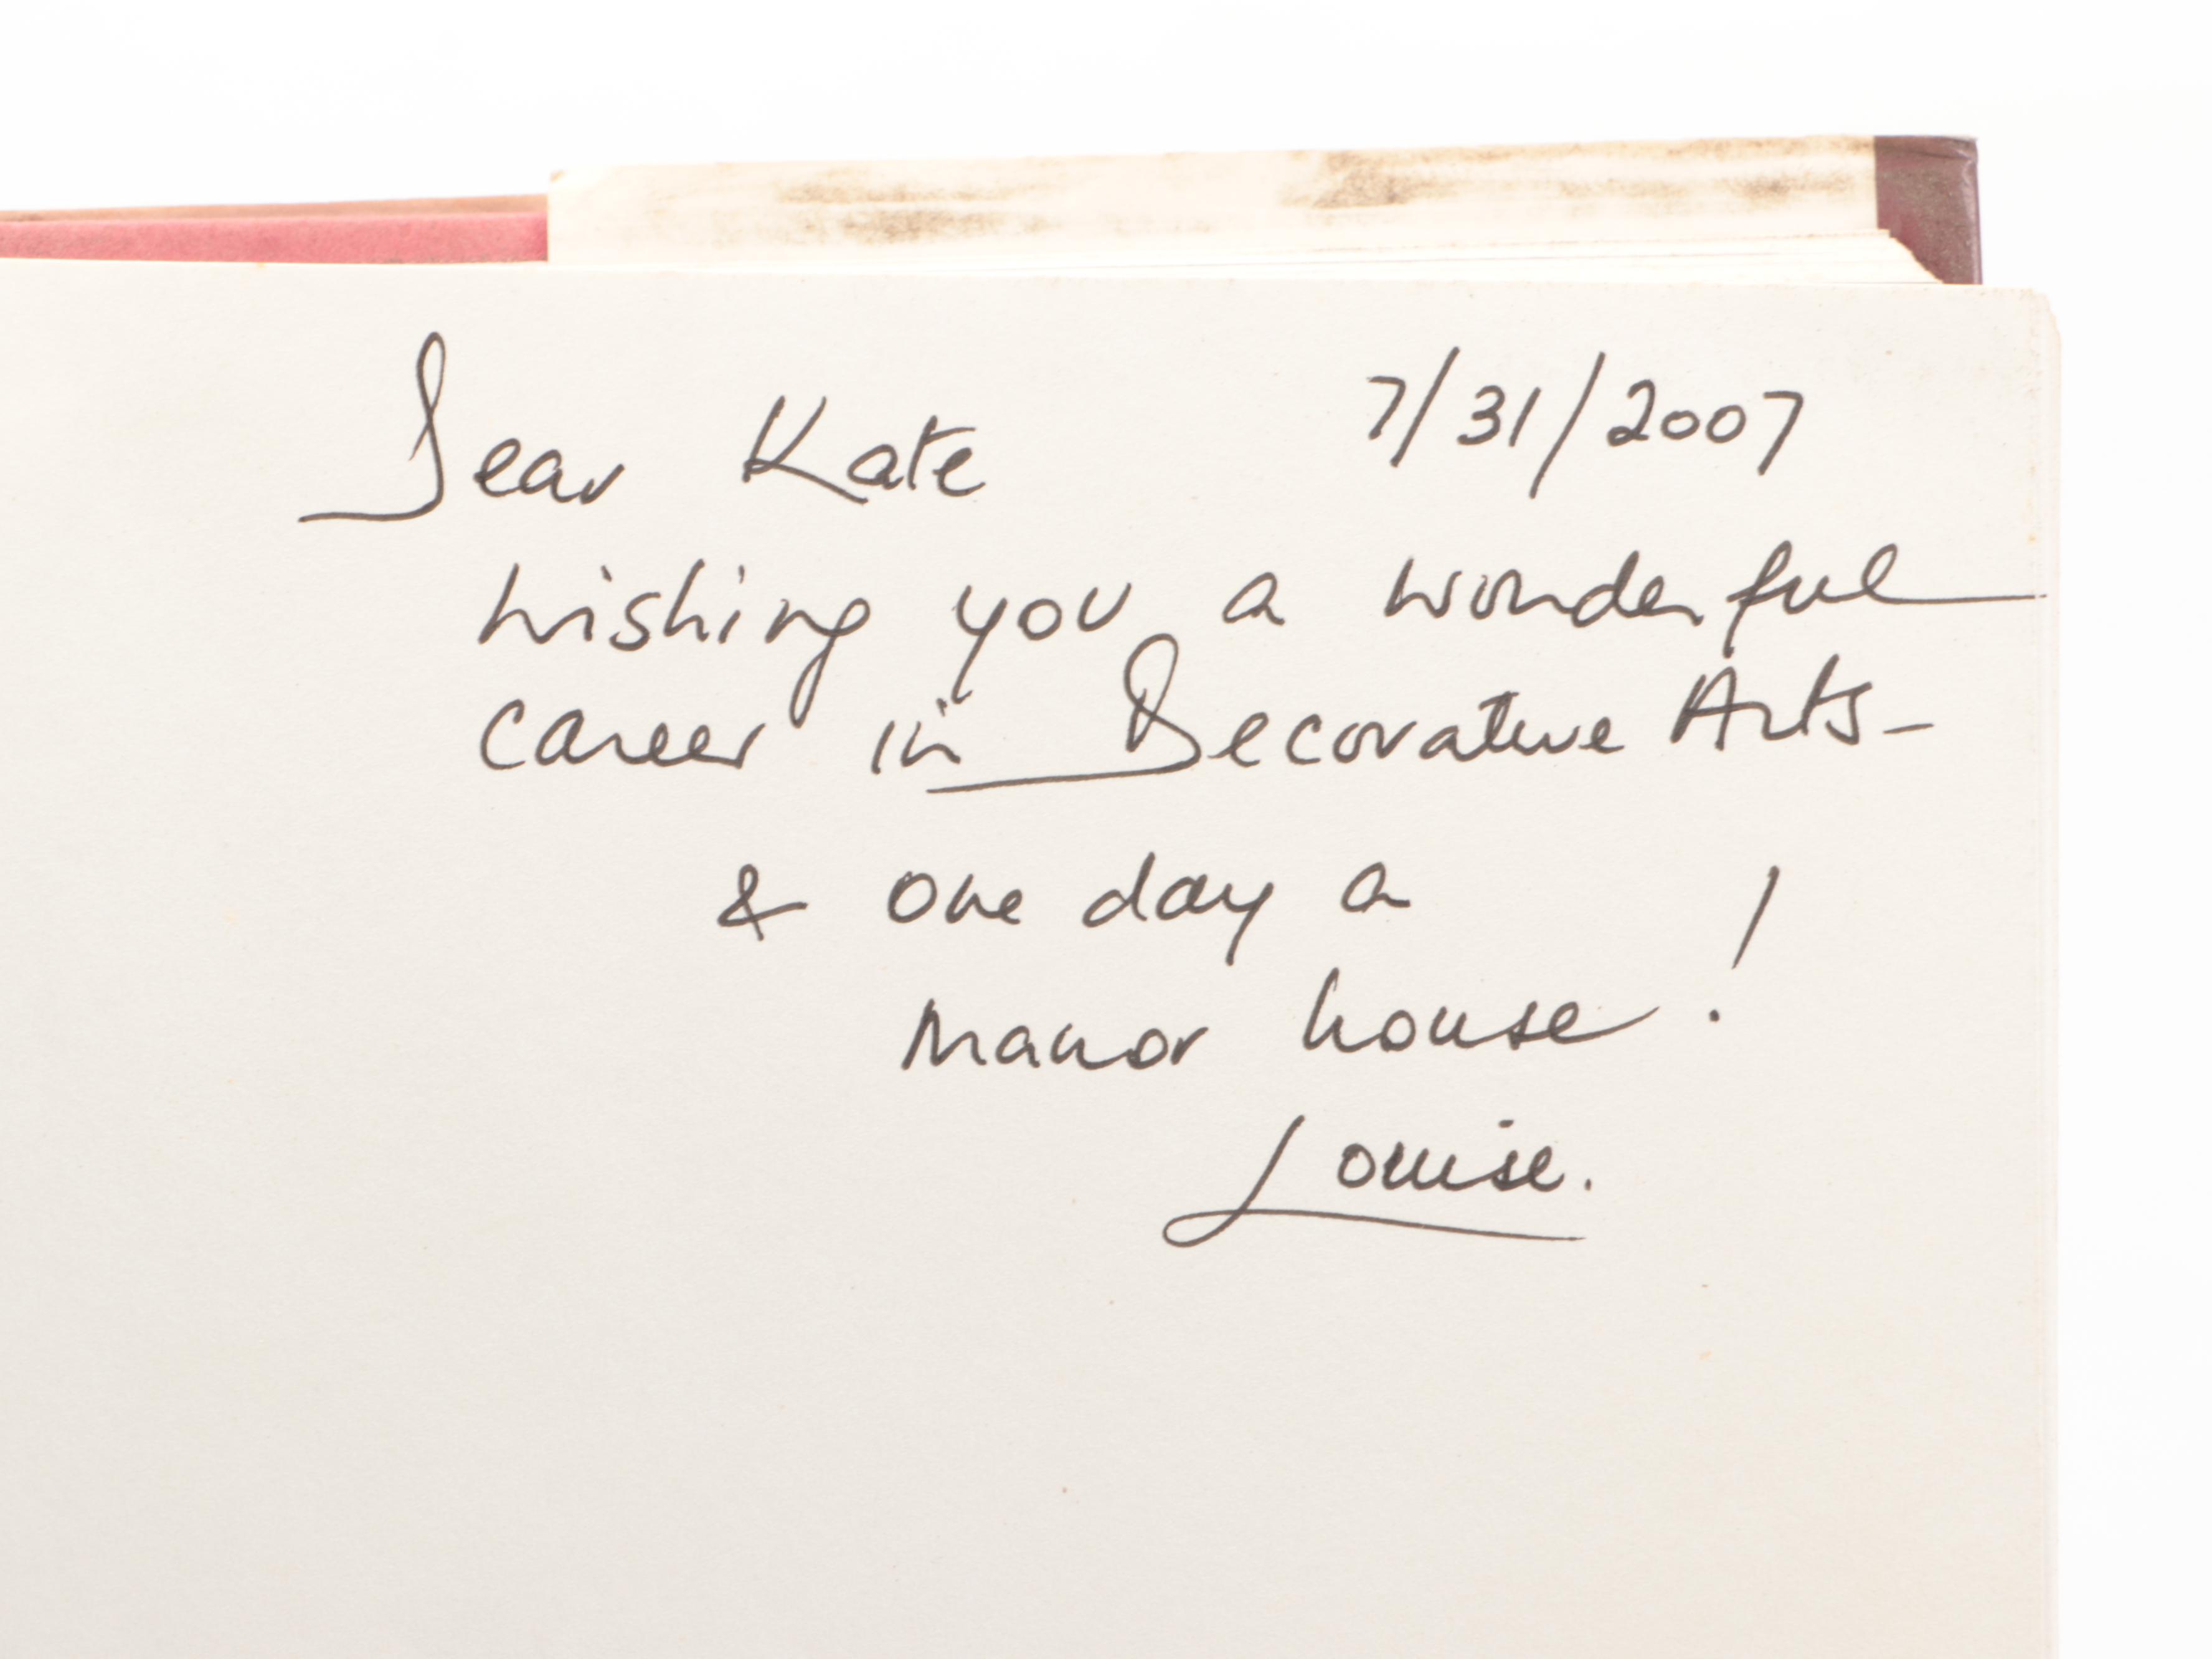 Dear Kate 7/31/2007
wishing you a wonderful
career in Decorative Arts-
& one day a
manor house!
Louise.